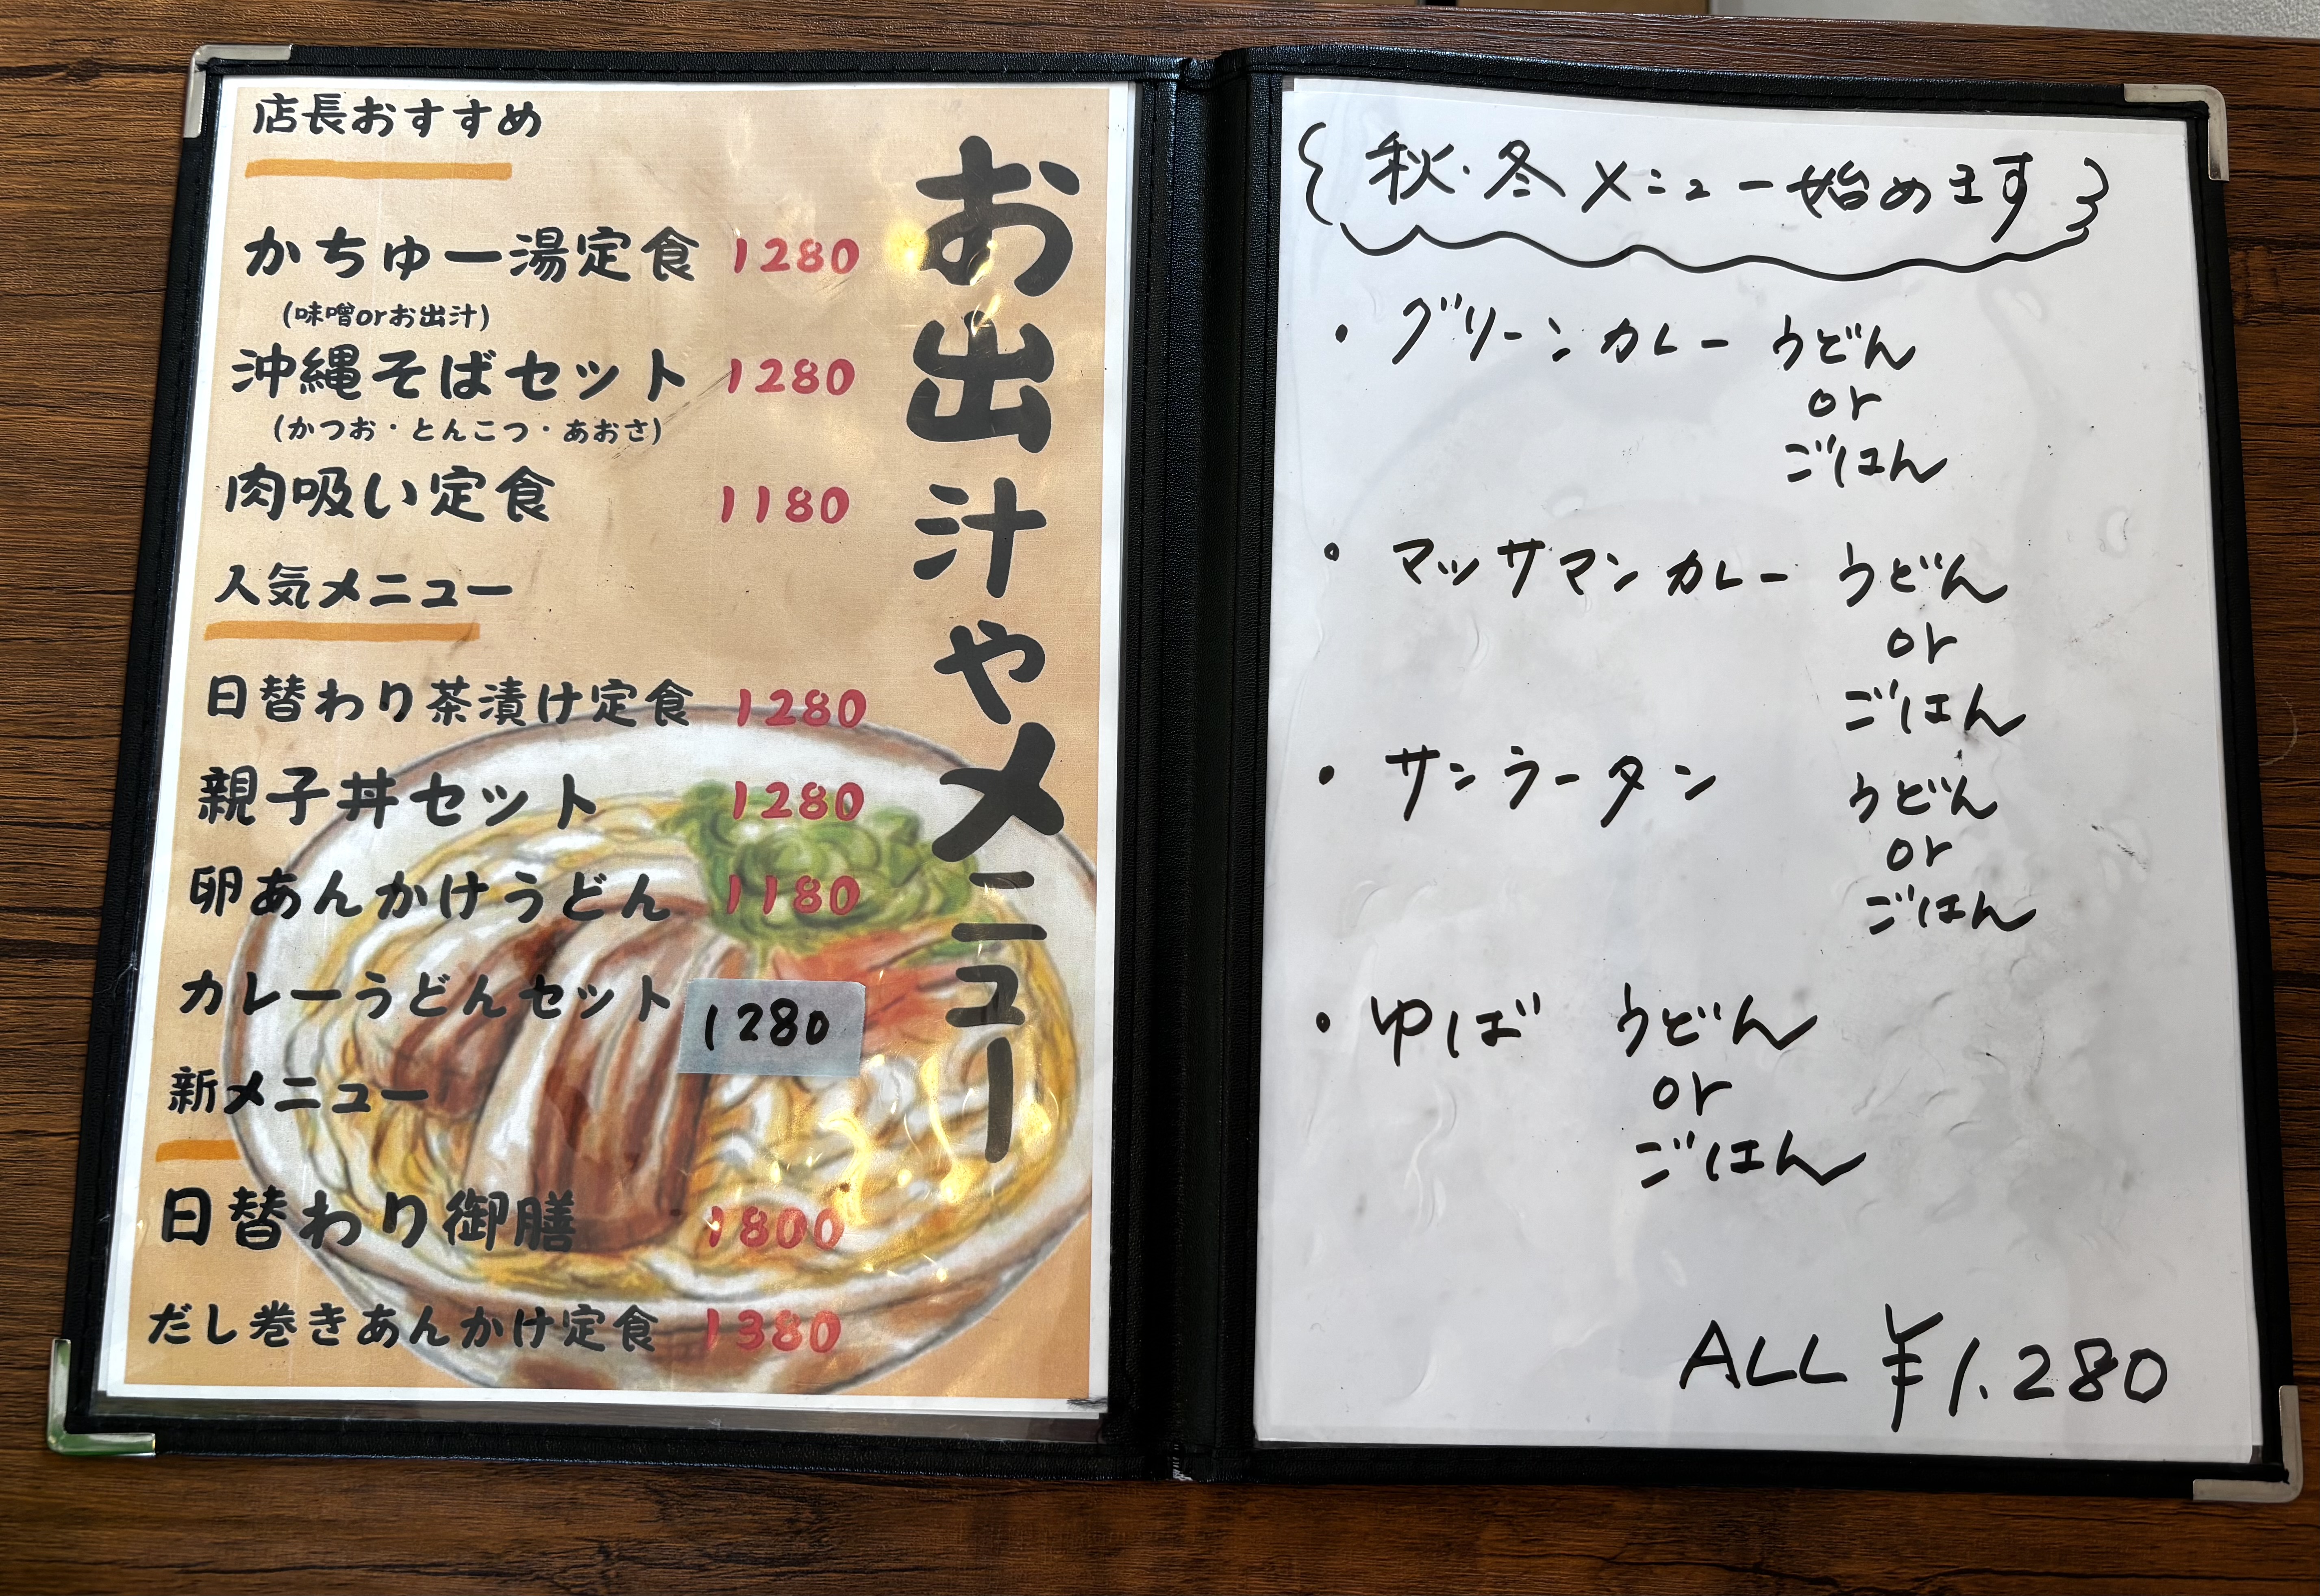 お出汁やメニュー
店長おすすめ
かちゅー湯定食 1280
(味噌orお出汁)
沖縄そばセット 1280
(かつお・とんこつ・あおさ)
肉吸い定食 1180
人気メニュー
日替わり茶漬け定食 1280
親子丼セット 1280
卵あんかけうどん 1180
カレーうどんセット 1280
新メニュー
日替わり御膳 1800
だし巻きあんかけ定食 1380
秋・冬メニュー始めます
・グリーンカレー うどん
or
ごはん
・マッサマンカレー うどん
or
ごはん
・サンラータン うどん
or
ごはん
・ゆば うどん
or
ごはん
ALL ¥1.280